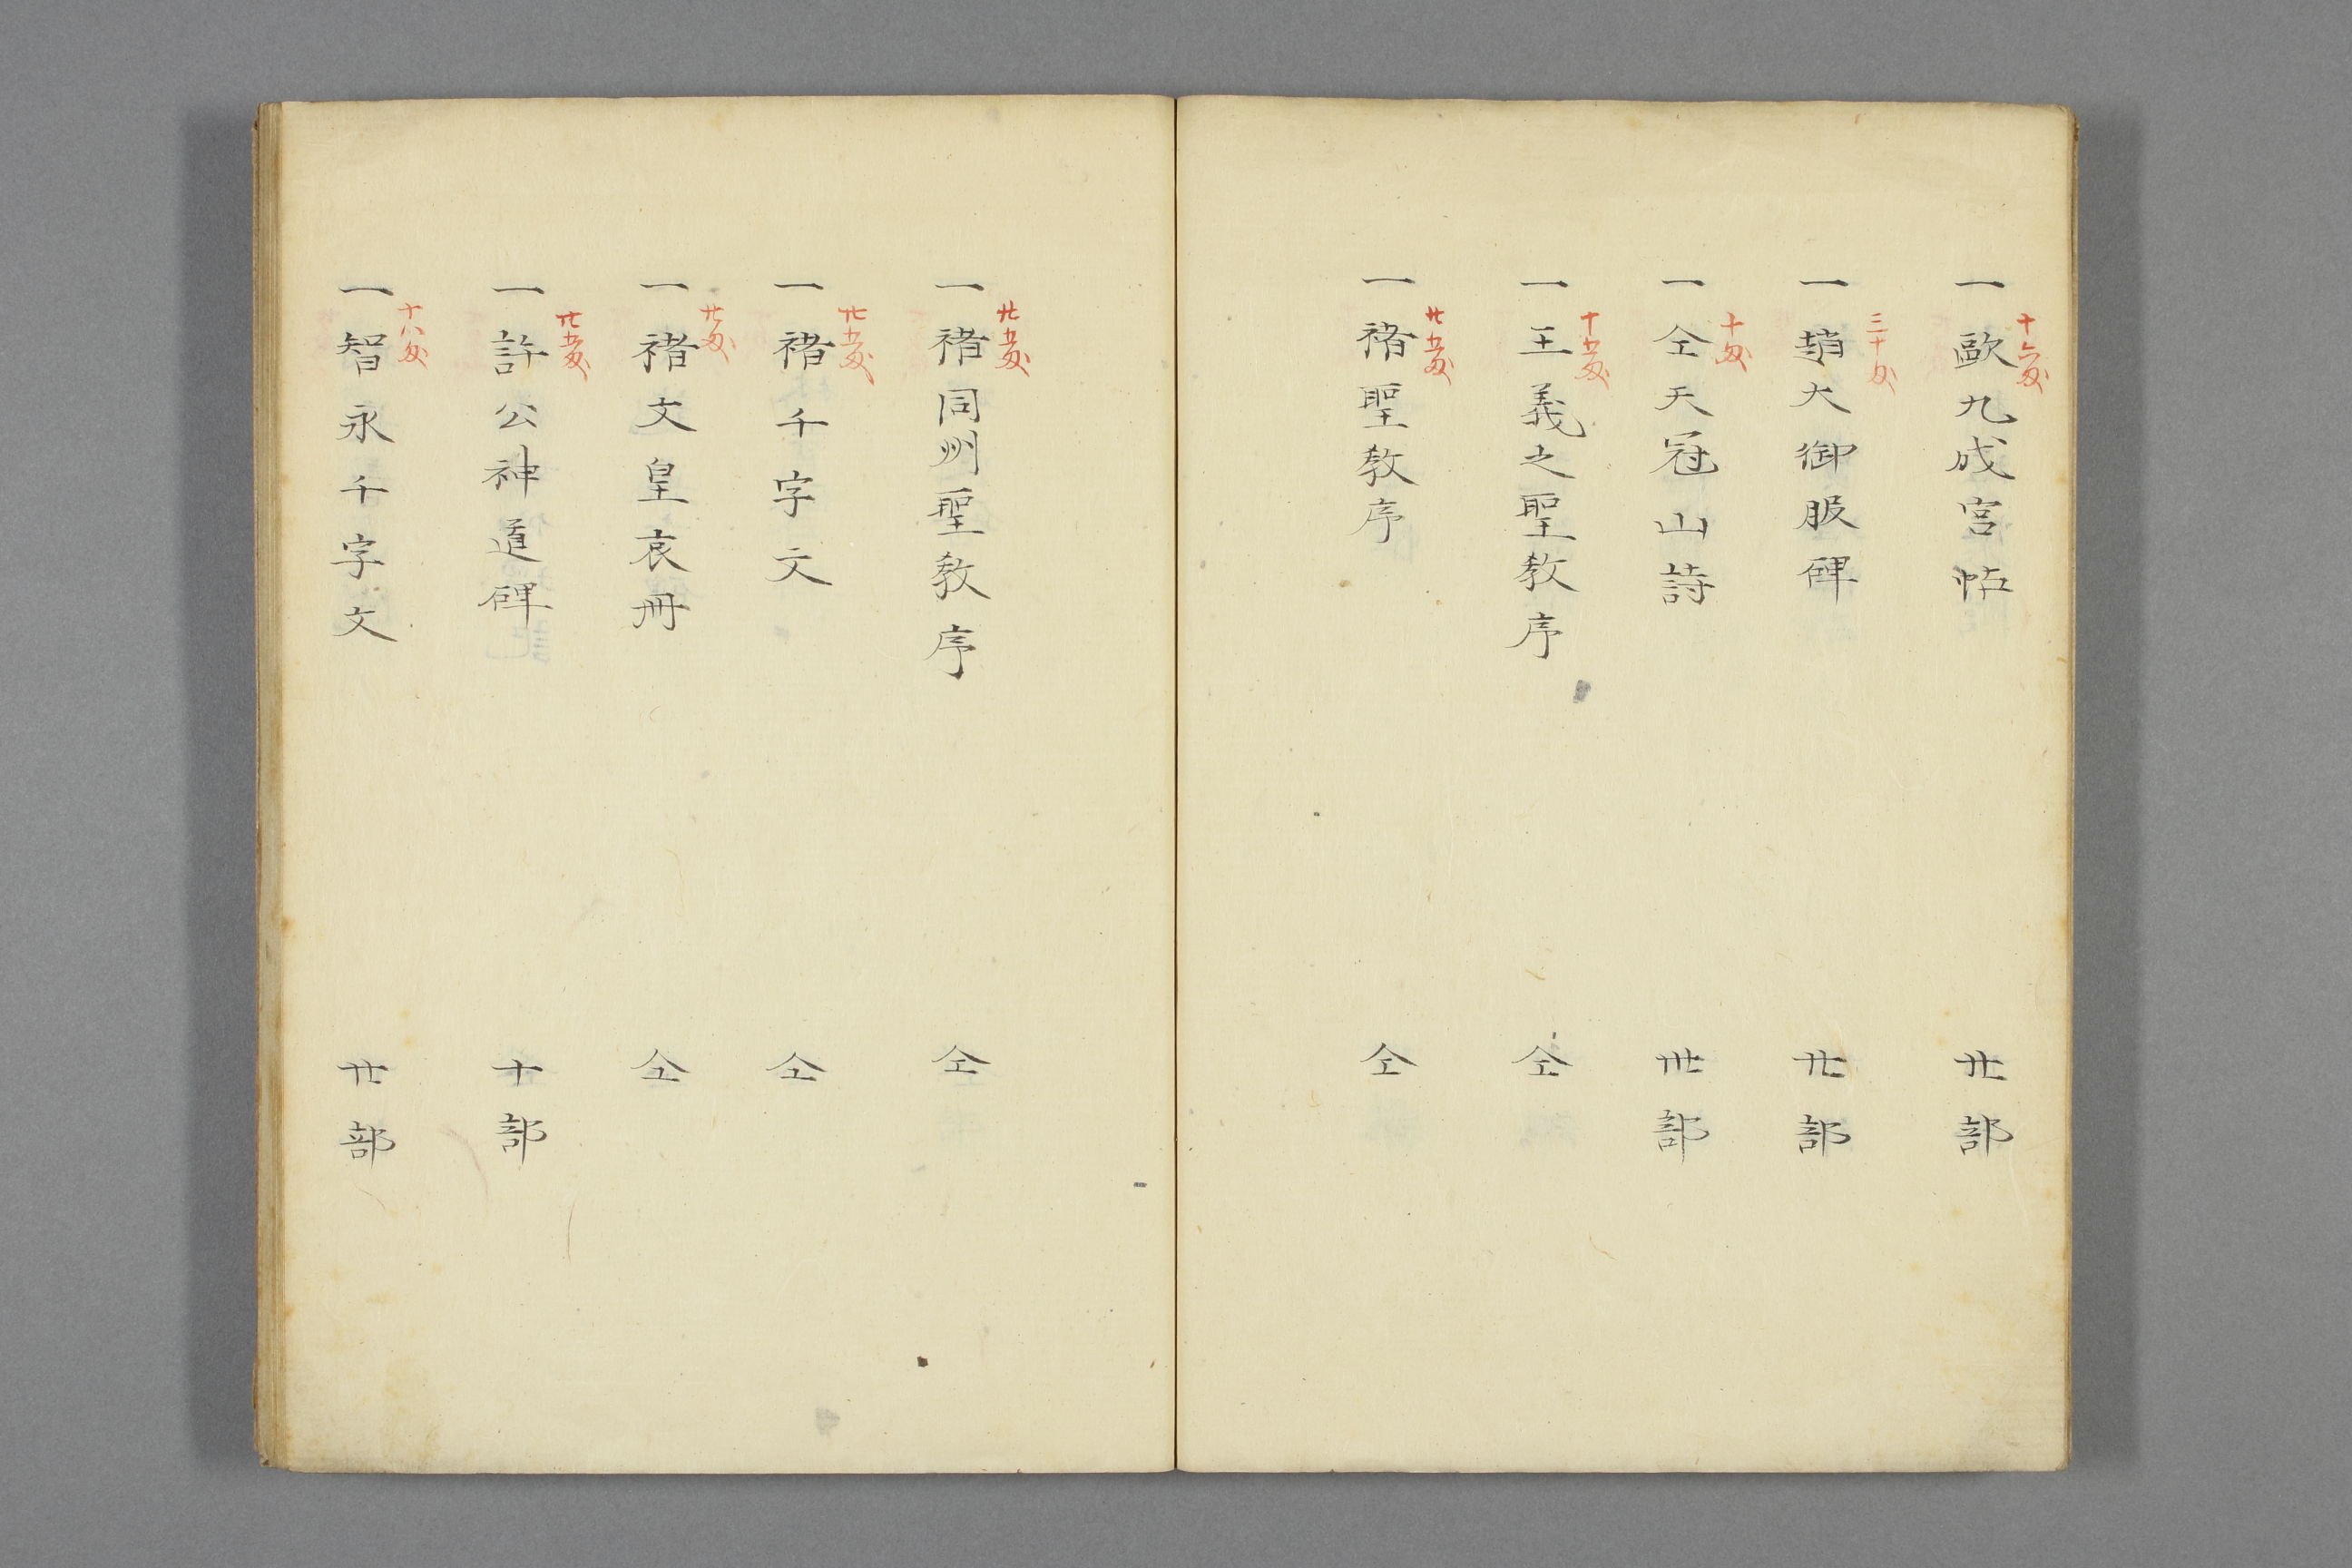 十六匁
一歐九成宮帖 廿部
三十匁
一趙大御服碑 廿部
十匁
一仝天冠山詩 卅部
十五匁
一王羲之聖教序 仝
廿五匁
一褚聖教序 仝
廿五匁
一褚同州聖教序 仝
廿五匁
一褚千字文 仝
廿匁
一褚文皇哀冊 仝
廿五匁
一許公神道碑 十部
十八匁
一智永千字文 廿部